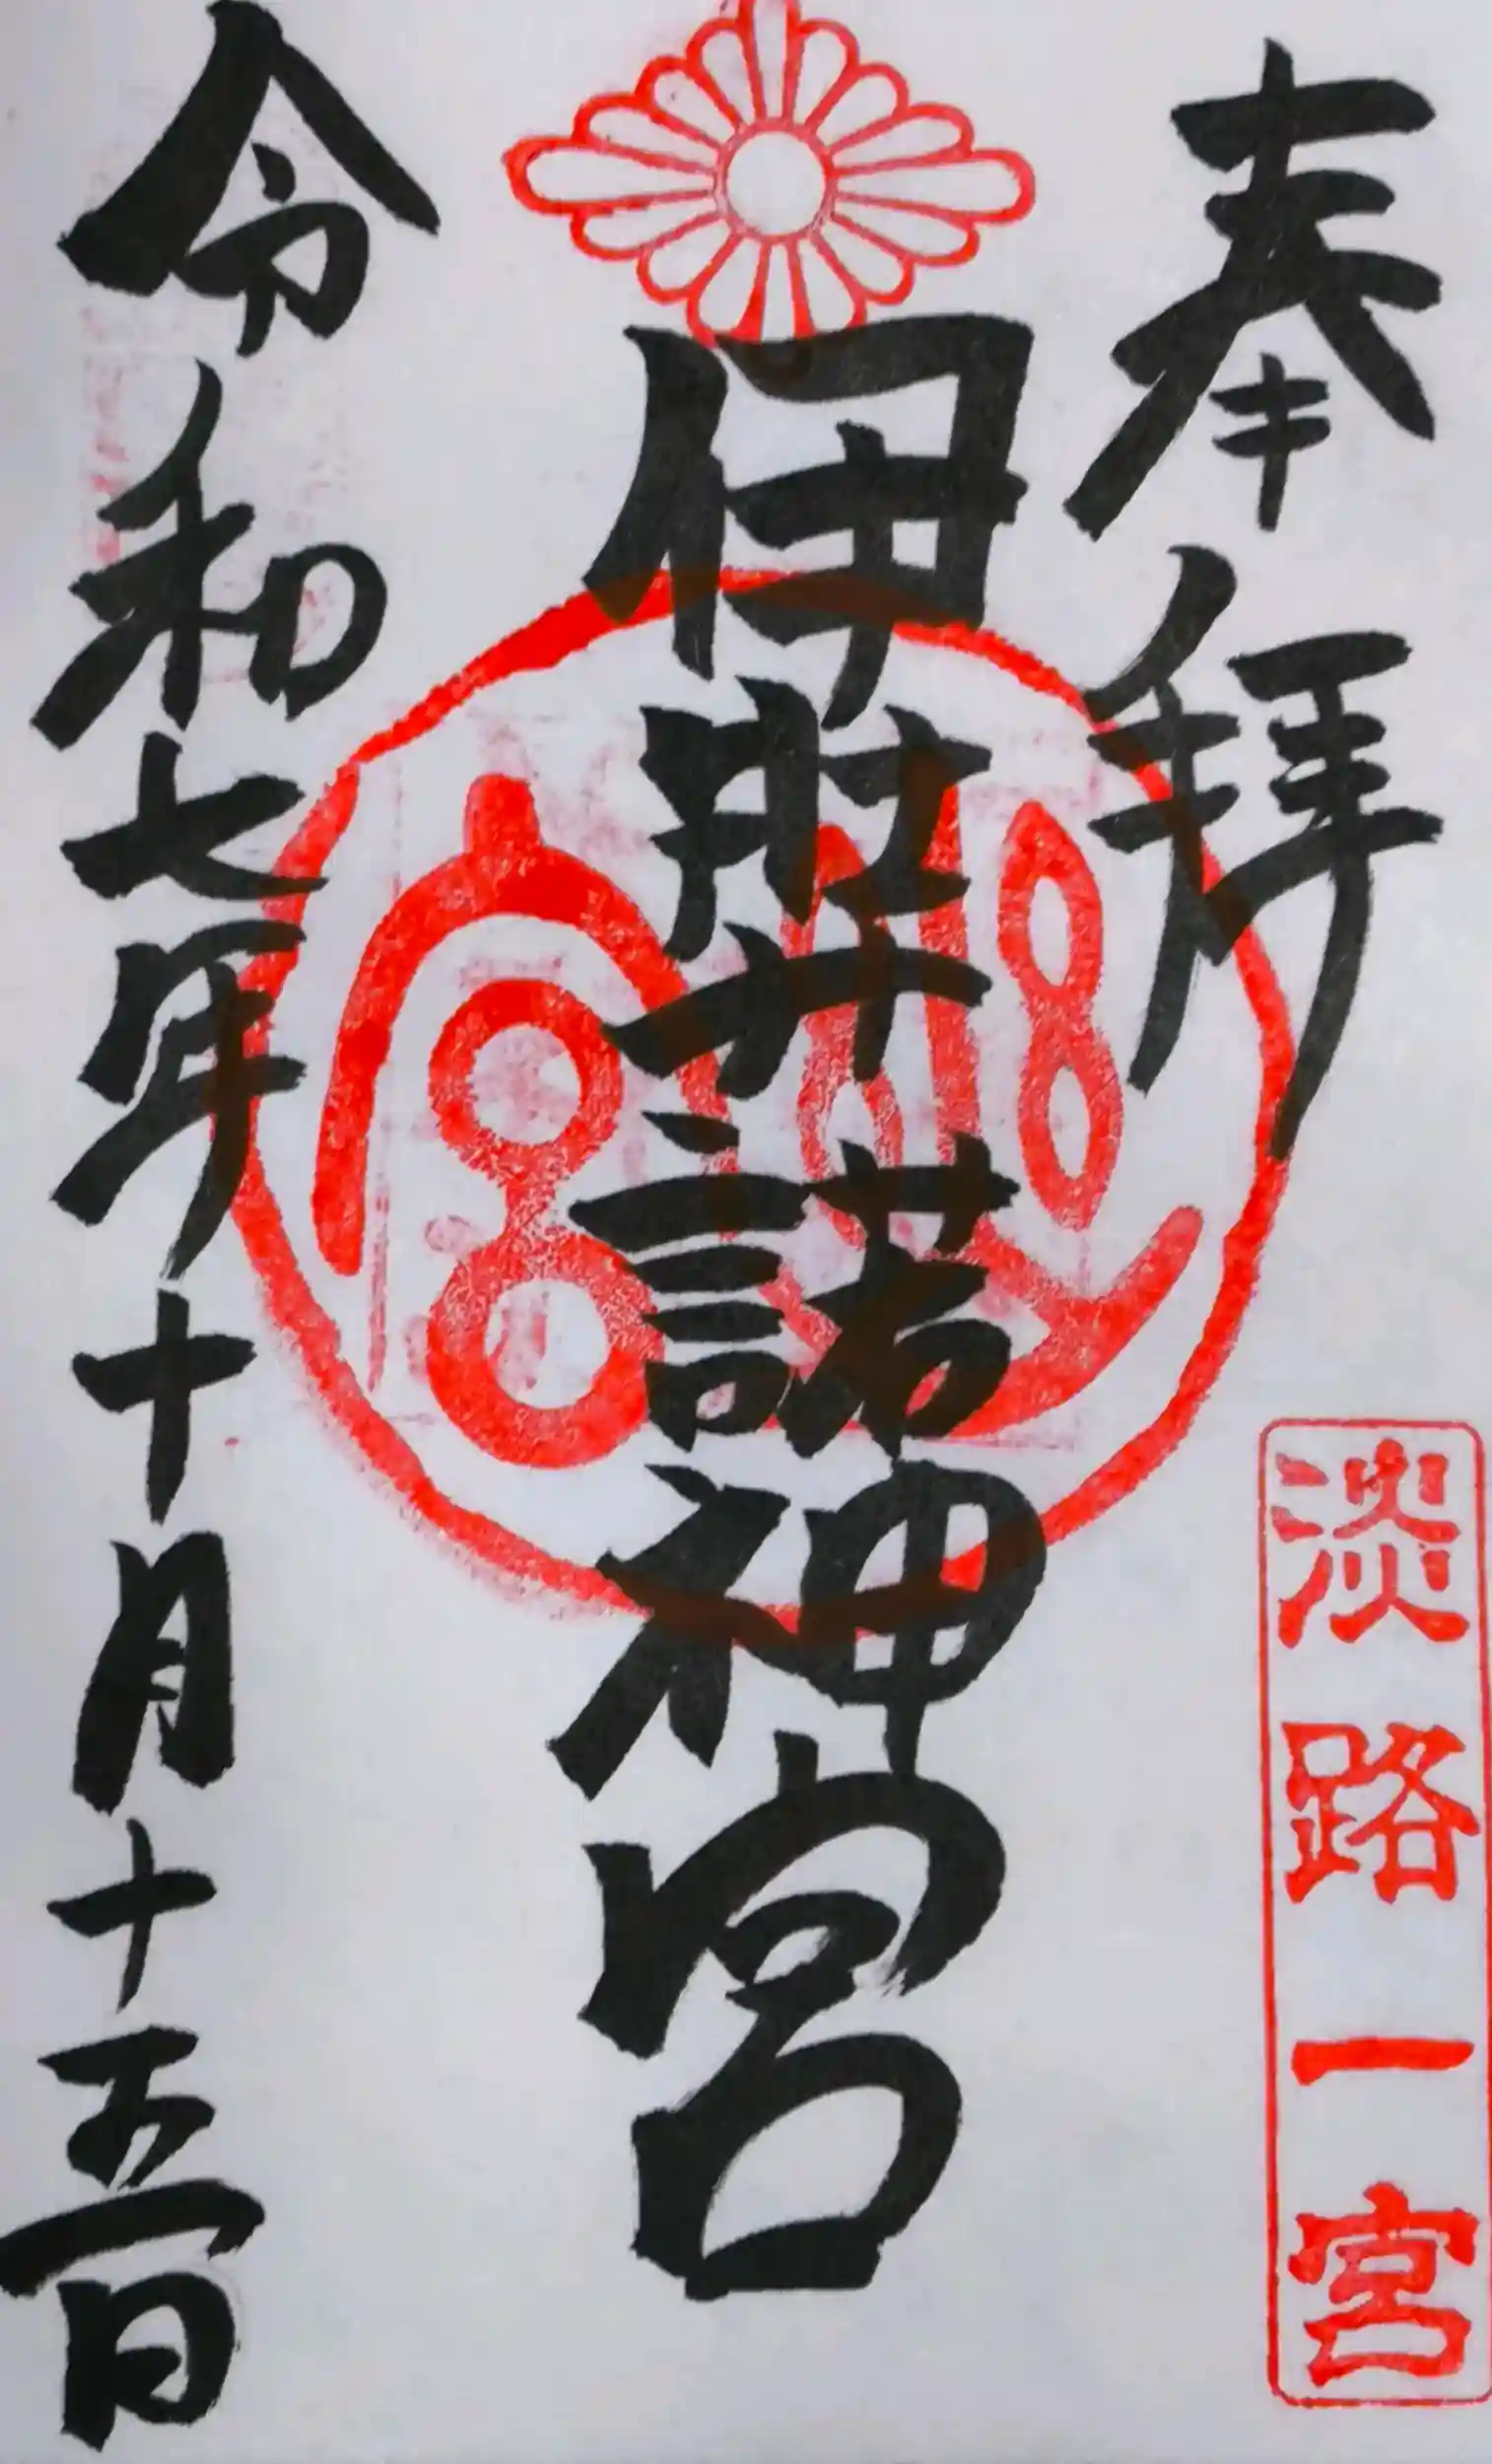 奉拝
淡路一宮
伊弉諾神宮
幽宮
令和七年十月十五日